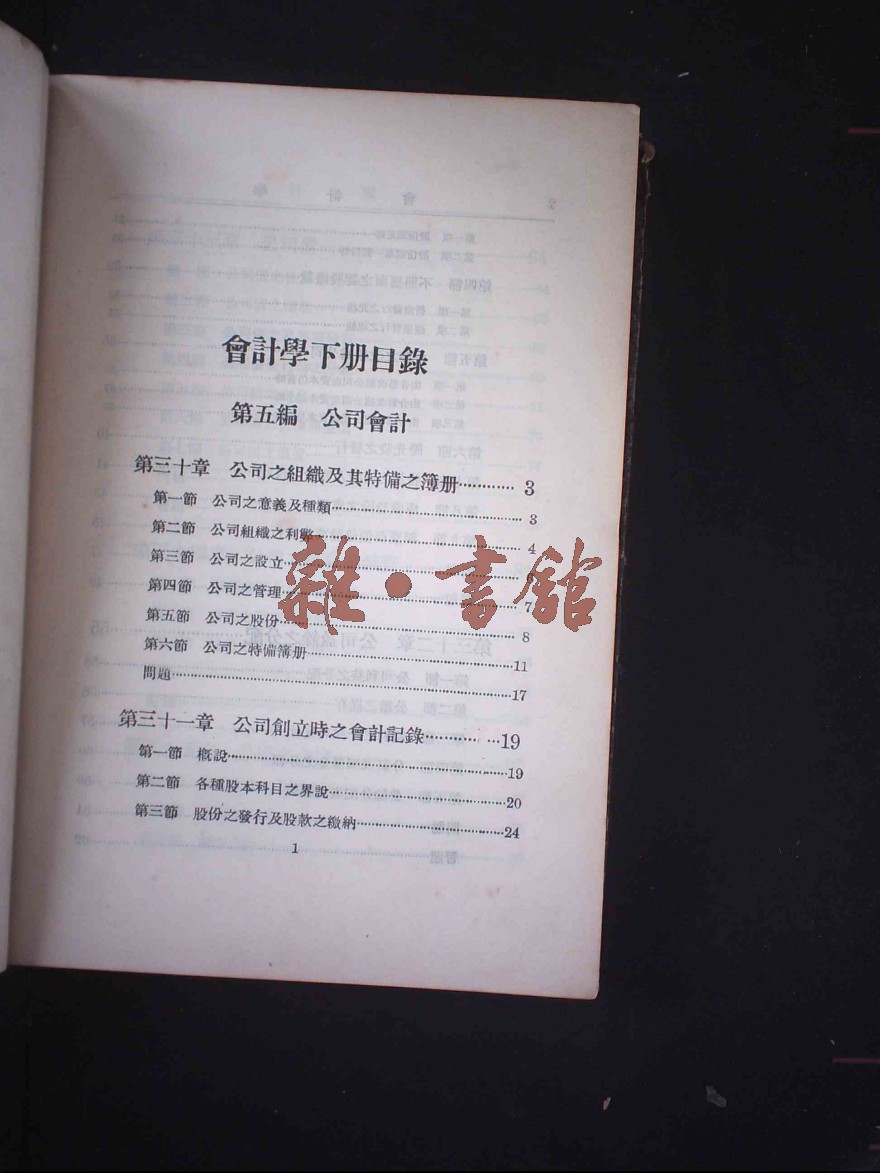 會計學下册目錄
第五編 公司會計
第三十章 公司之組織及其特備之簿册………… 3
第一節 公司之意義及種類………… 3
第二節 公司組織之利弊………… 4
第三節 公司之設立………… 6
第四節 公司之管理………… 7
第五節 公司之股份………… 8
第六節 公司之特備簿册………… 11
問題………… 17
第三十一章 公司創立時之會計記錄………… 19
第一節 概說………… 19
第二節 各種股本科目之界說………… 20
第三節 股份之發行及股款之繳納………… 24
1
雜·書館